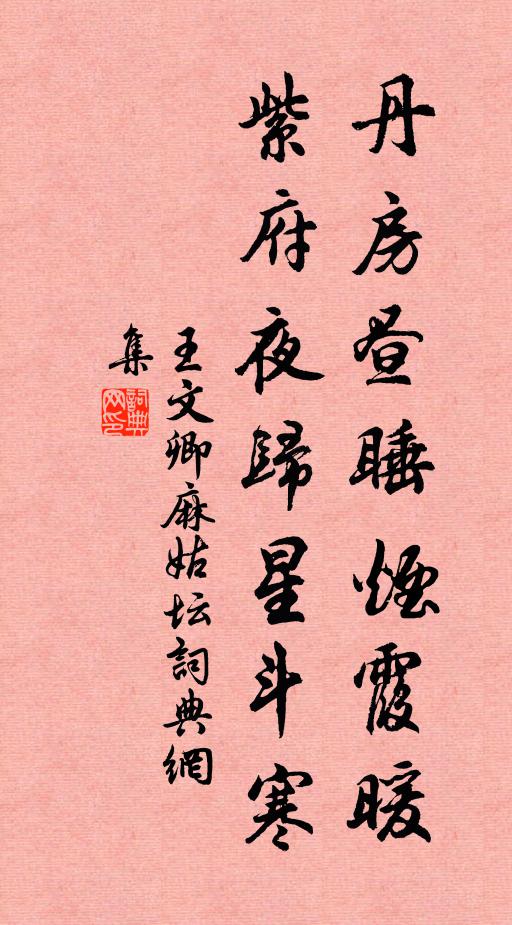 丹房昼睡煙霞暖
紫府夜歸星斗寒
王文卿麻姑坛詞典網
集
詞典
网印